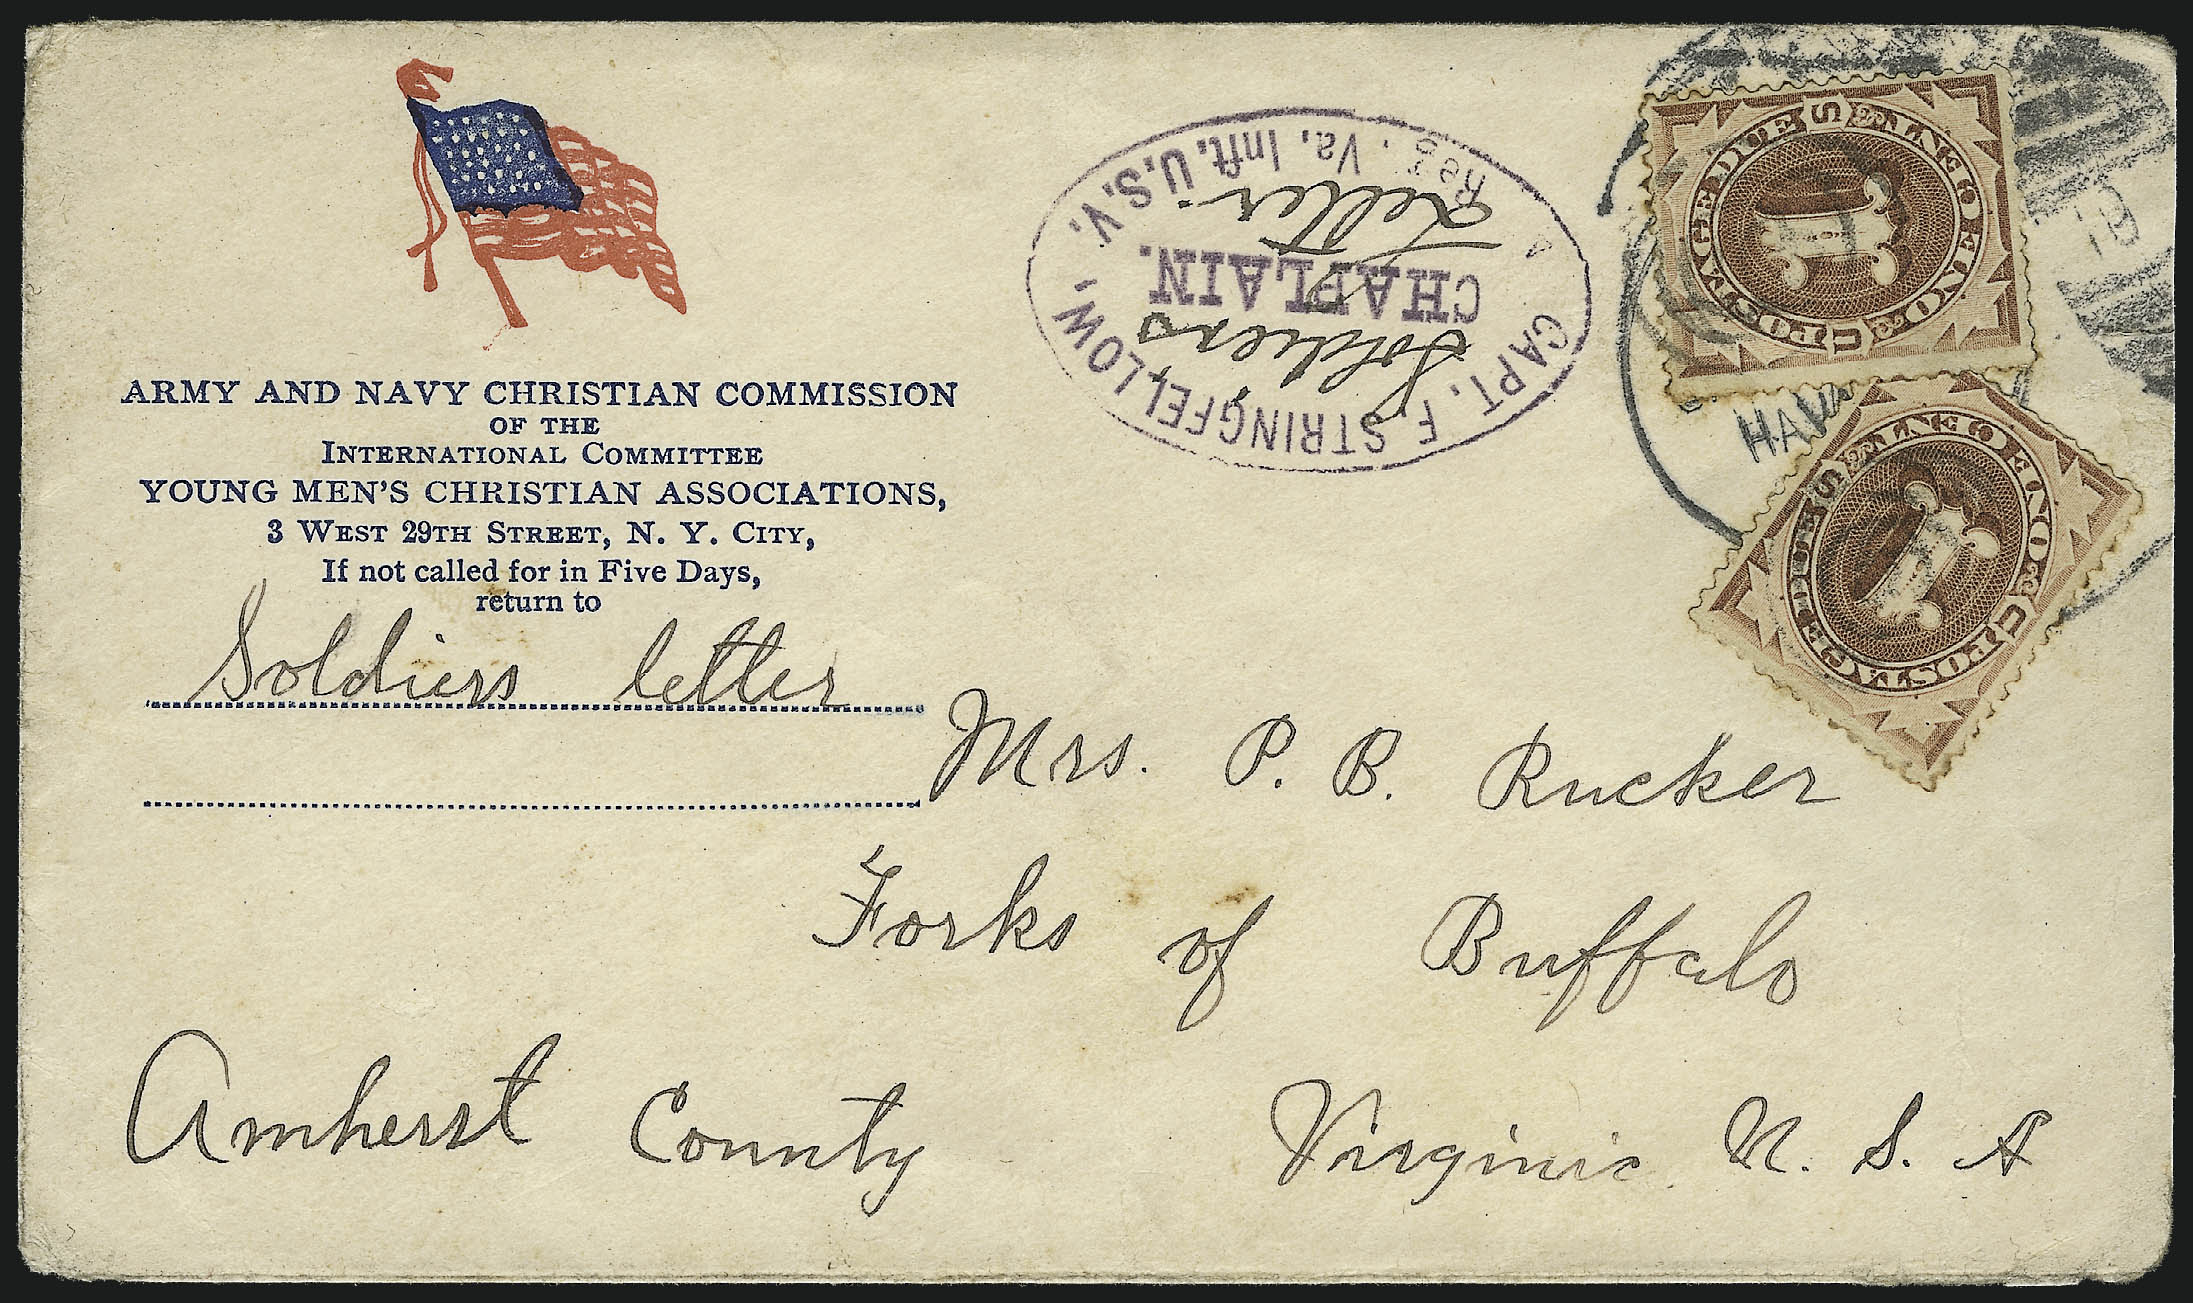 ARMY AND NAVY CHRISTIAN COMMISSION
OF THE
INTERNATIONAL COMMITTEE
YOUNG MEN'S CHRISTIAN ASSOCIATIONS,
3 WEST 29TH STREET, N. Y. CITY,
If not called for in Five Days,
return to
Soldiers letter
CAPT. F. STRINGFELLOW,
CHAPLAIN.
Reg. Va. Inft. U.S.V.
Soldiers
Letter
HAV
POSTAGE DUE
1
ONE CENT
U S
POSTAGE DUE
1
ONE CENT
U S
Mrs. P. B. Rucker
Forks of Buffalo
Amherst County Virginia U. S. A